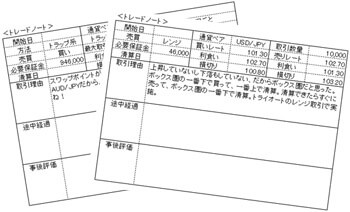 <トレードノート>
開始日
方法 トラップ系
売買 買い
必要保証金 946,000
清算日
取引理由 スワップポイントが
AUD/JPYだから、
ね!
途中経過
事後評価
<トレードノート>
開始日
売買 レンジ 通貨ペア USD/JPY 取引数量 10,000
必要保証金 46,000 買いレート 101.30 売りレート 102.70
清算日 利食い 102.70 利食い 101.30
損切り 100.80 損切り 103.20
取引理由 上昇していないし下落もしていない、だからボックス圏だと思った。
ボックス圏の一番下で買って、一番上で清算。清算できたらすぐに
売って、ボックス圏の一番下で清算。トライオートのレンジ取引で実
践。
途中経過
事後評価